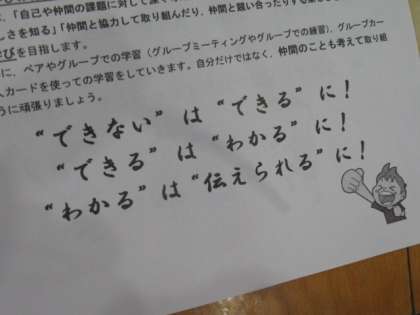 、「自己や仲間の課題に対して深く
しさを知る」「仲間と協力して取り組んだり、仲間と競い合ったりする
びを目指します。
に、ペアやグループでの学習（グループミーティングやグループでの練習）、グループカー
人カードを使っての学習をしていきます。自分だけではなく、仲間のことも考えて取り組
うに頑張りましょう。
“できない”は“できる”に！
“できる”は“わかる”に！
“わかる”は“伝えられる”に！